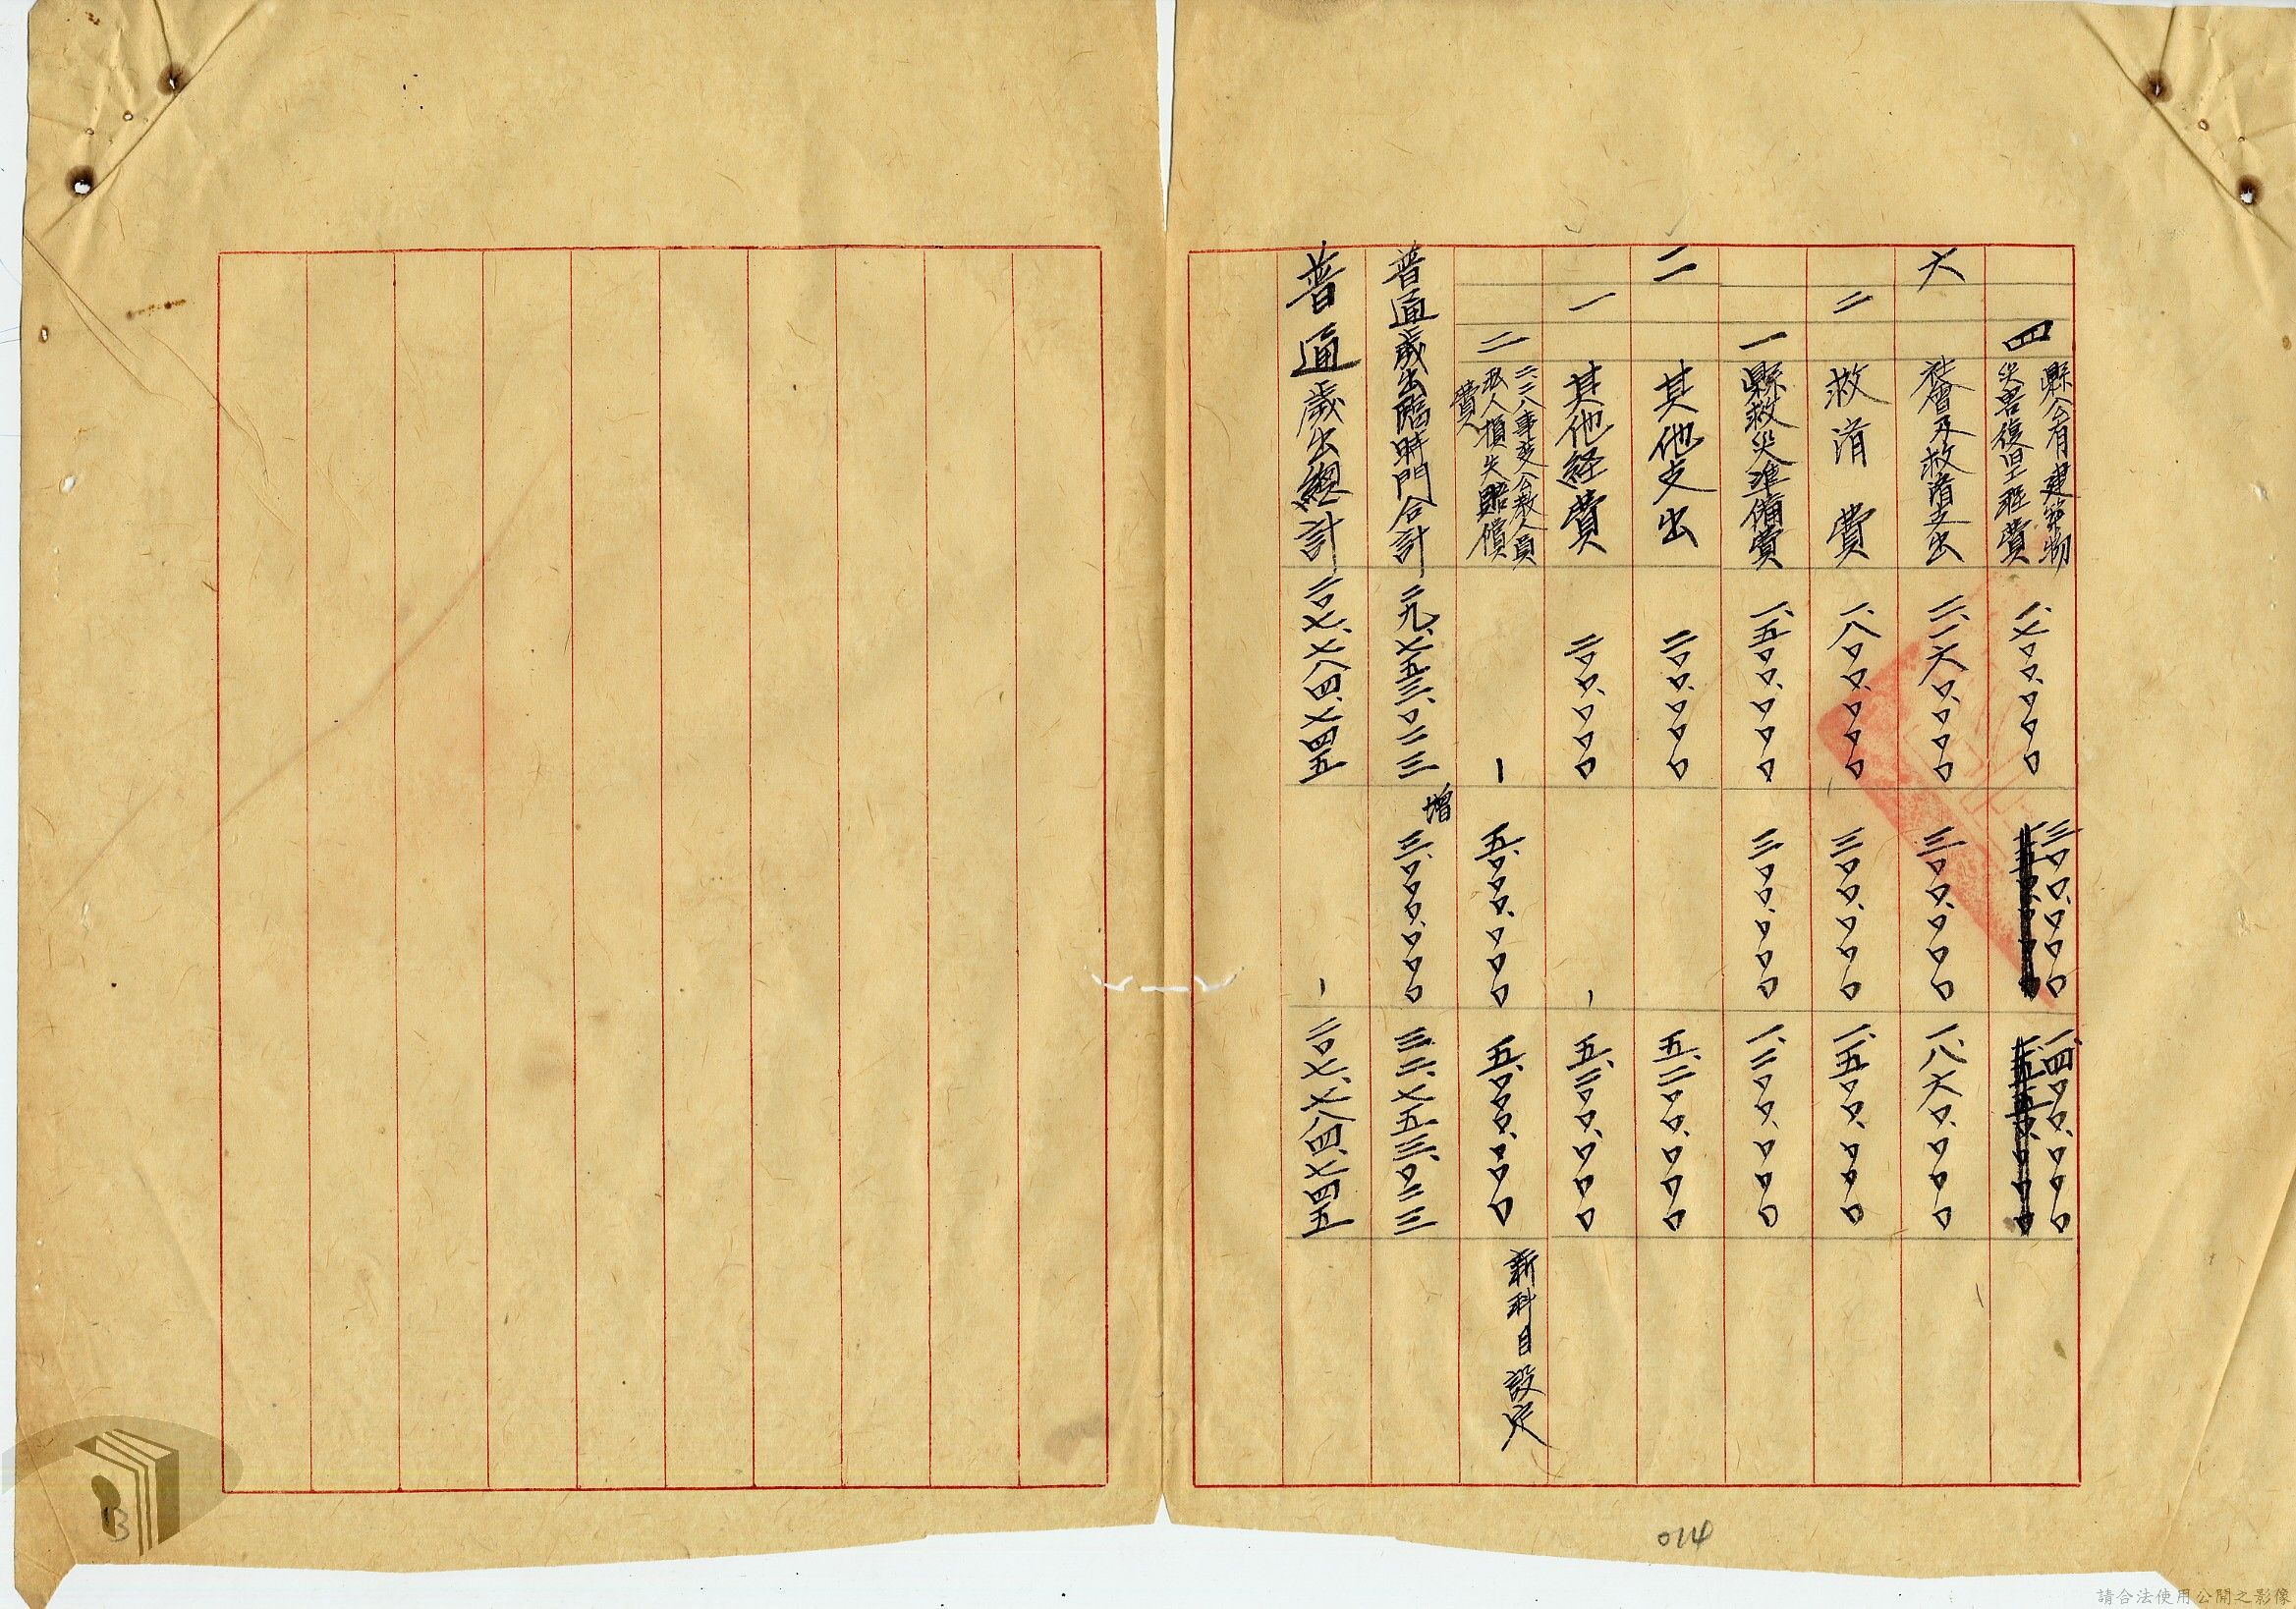 四 縣公有建築物
災害復旧工程費 一、七〇〇、〇〇〇 三〇〇、〇〇〇 一、四〇〇、〇〇〇
六 社會及救濟支出 二、一六〇、〇〇〇 三〇〇、〇〇〇 一、八六〇、〇〇〇
二 救濟費 一、八〇〇、〇〇〇 三〇〇、〇〇〇 一、五〇〇、〇〇〇
一 縣救災準備費 一、五〇〇、〇〇〇 三〇〇、〇〇〇 一、二〇〇、〇〇〇
二 其他支出 二〇〇、〇〇〇 五、二〇〇、〇〇〇
一 其他経費 二〇〇、〇〇〇 - 五、二〇〇、〇〇〇
二 二、二八事変公教人員
私人損失賠償
費 - 五、〇〇〇、〇〇〇 五、〇〇〇、〇〇〇 新科目設定
普通歲出臨時門合計 二九、七五三、〇二三 增 三、〇〇〇、〇〇〇 三二、七五三、〇二三
普通歲出總計 二〇七、七八四、七四五 - 二〇七、七八四、七四五
014
13
請合法使用公開之影像